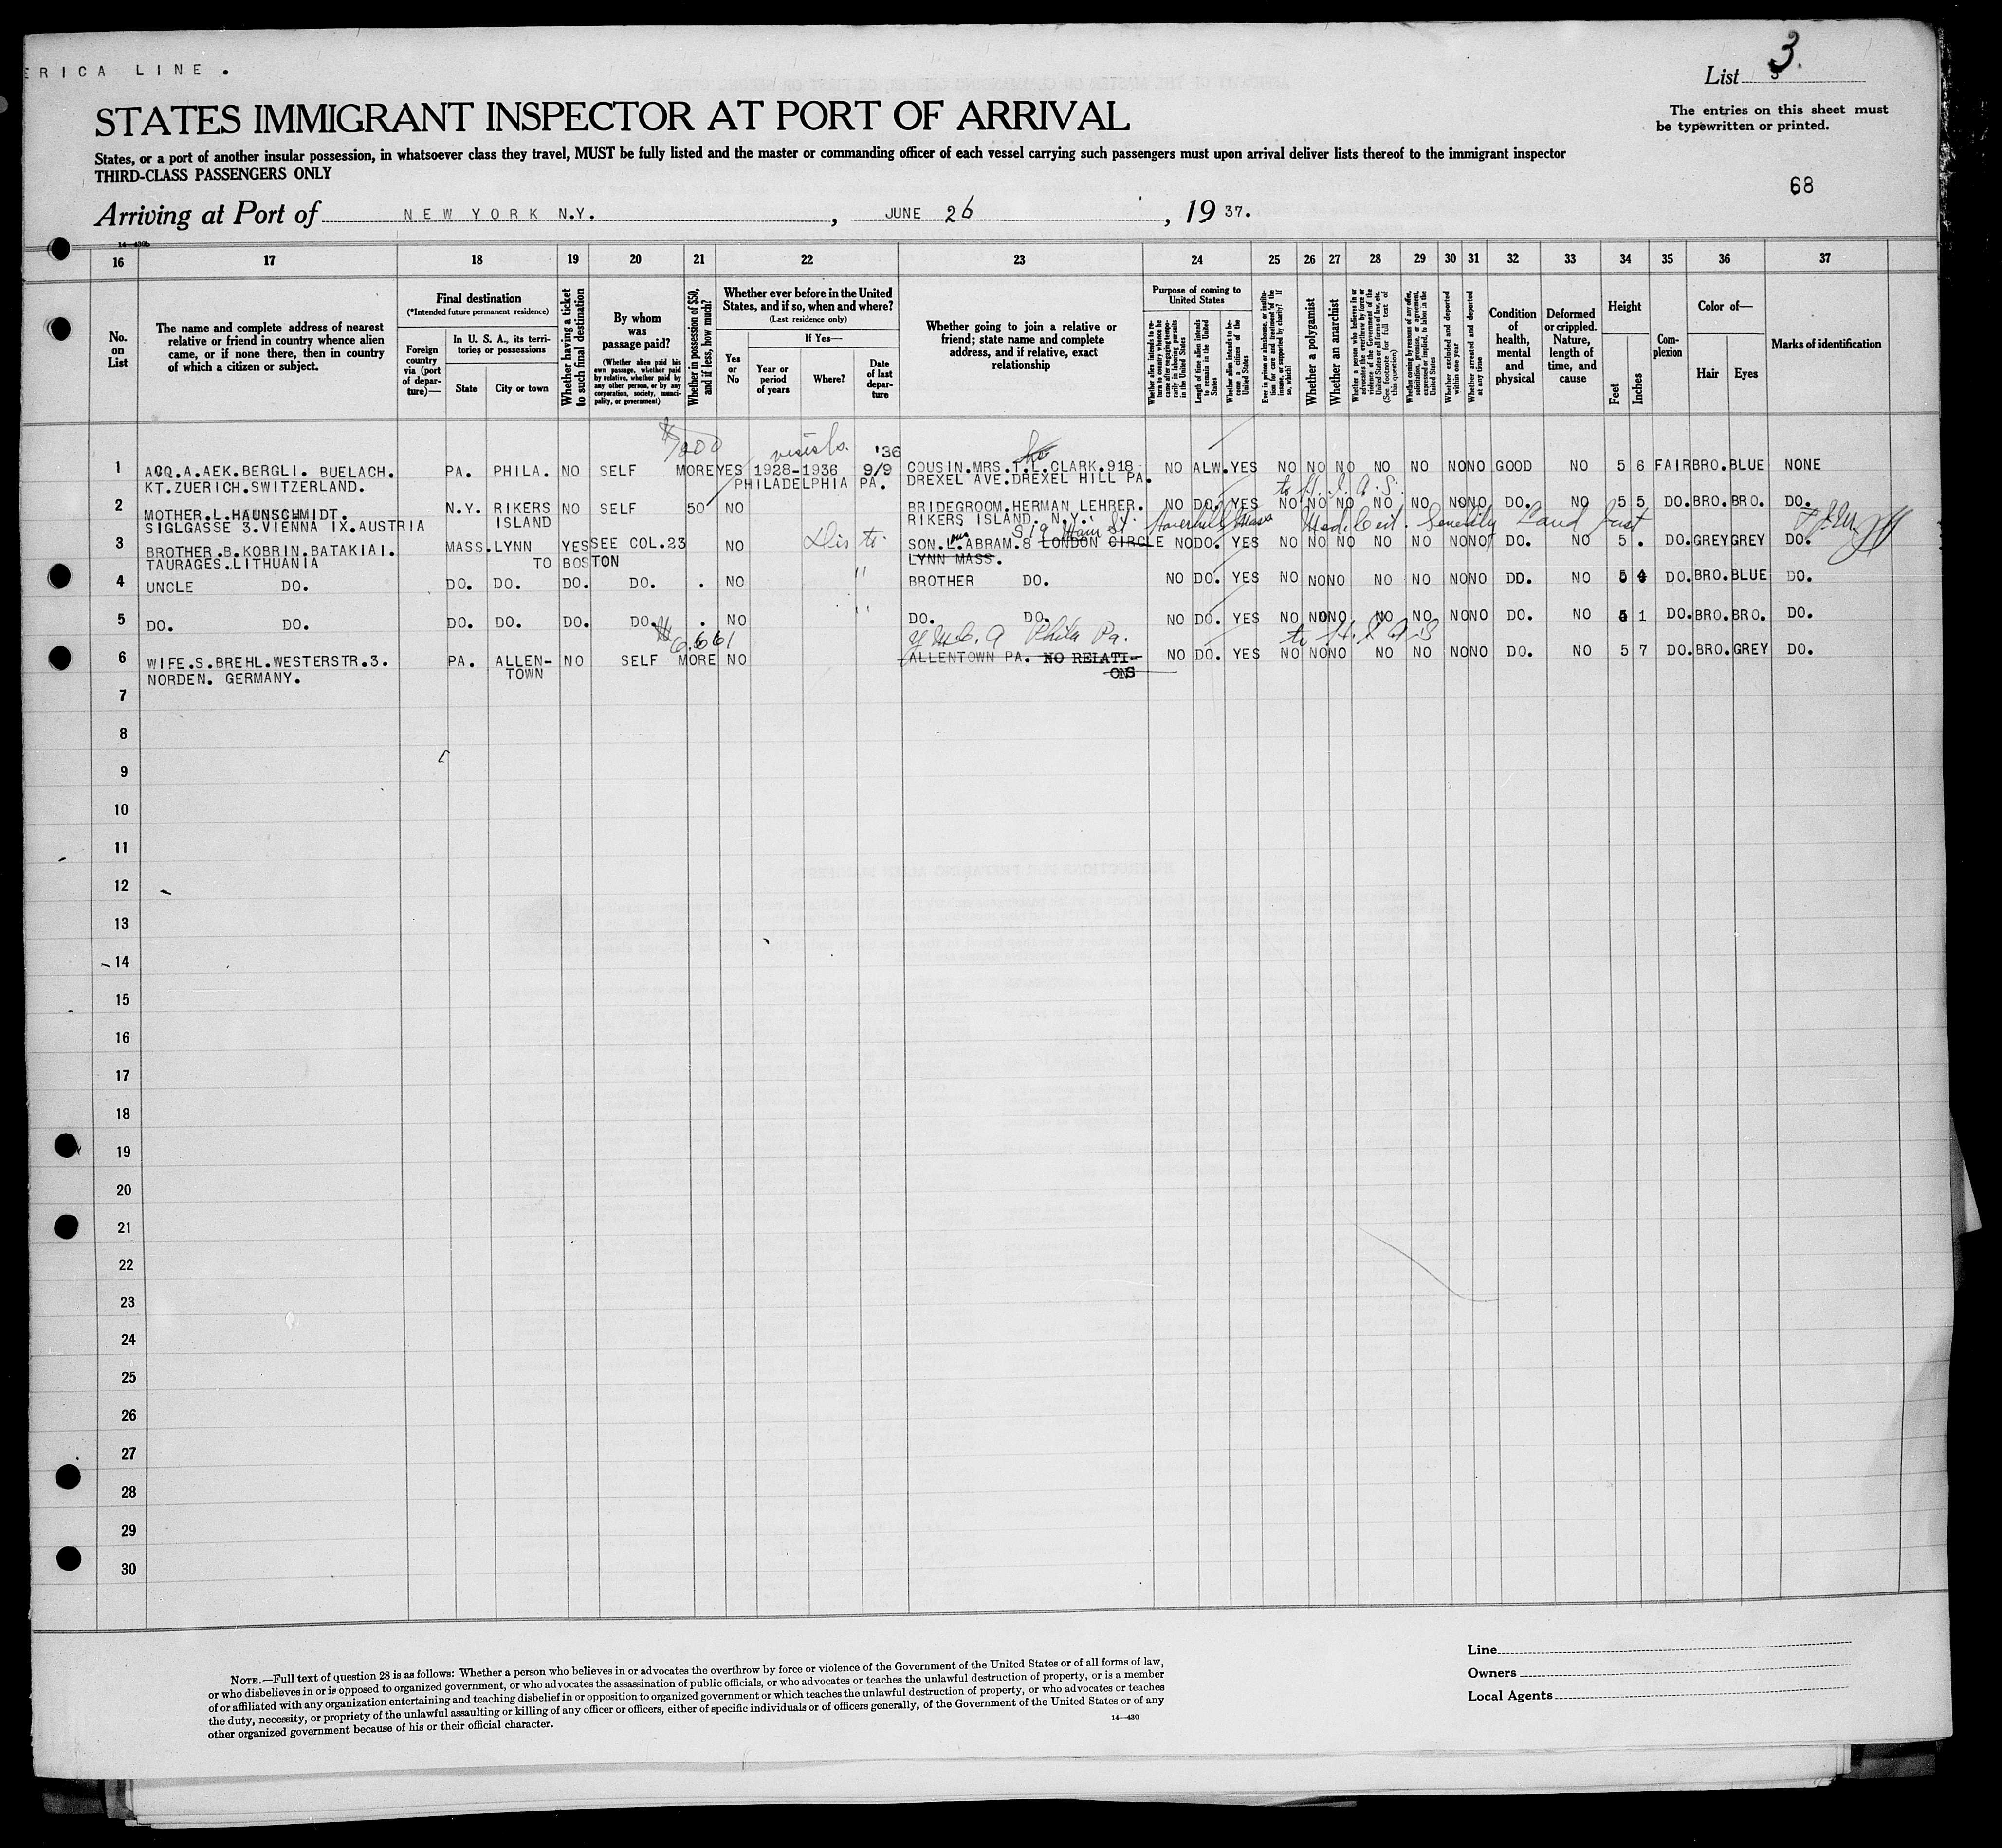 ERICA LINE.
List 3
3.
The entries on this sheet must
be typewritten or printed.
STATES IMMIGRANT INSPECTOR AT PORT OF ARRIVAL
States, or a port of another insular possession, in whatsoever class they travel, MUST be fully listed and the master or commanding officer of each vessel carrying such passengers must upon arrival deliver lists thereof to the immigrant inspector
THIRD-CLASS PASSENGERS ONLY
68
Arriving at Port of NEW YORK N.Y. , JUNE 26 , 19 37.
14—430b
16 17 18 19 20 21 22 23 24 25 26 27 28 29 30 31 32 33 34 35 36 37
No.
on
List
The name and complete address of nearest
relative or friend in country whence alien
came, or if none there, then in country
of which a citizen or subject.
Final destination
(*Intended future permanent residence)
Foreign
country
via (port
of depar-
ture)—
In U. S. A., its terri-
tories or possessions
State City or town
Whether having a ticket
to such final destination
By whom
was
passage paid?
(Whether alien paid his
own passage, whether paid
by relative, whether paid by
any other person, or by any
corporation, society, munici-
pality, or government)
Whether in possession of $50,
and if less, how much?
Whether ever before in the United
States, and if so, when and where?
(Last residence only)
Yes
or
No
If Yes—
Year or
period
of years
Where?
Date
of last
depar-
ture
Whether going to join a relative or
friend; state name and complete
address, and if relative, exact
relationship
Purpose of coming to
United States
Whether alien intends to re-
turn to country whence he
came after engaging tempo-
rarily in laboring pursuits
in the United States
Length of time alien intends
to remain in the United
States
Whether alien intends to be-
come a citizen of the
United States
Ever in prison or almshouse, or institu-
tion for care and treatment of the
insane, or supported by charity? If
so, which?
Whether a polygamist
Whether an anarchist
Whether a person who believes in or
advocates the overthrow by force or
violence of the Government of the
United States or all forms of law, etc.
(See footnote for full text of
this question)
Whether coming by reasons of any offer,
solicitation, promise, or agreement,
expressed or implied, to labor in the
United States
Whether excluded and deported
within one year
Whether arrested and deported
at any time
Condition
of
health,
mental
and
physical
Deformed
or crippled.
Nature,
length of
time, and
cause
Height
Feet Inches
Com-
plexion
Color of—
Hair Eyes
Marks of identification
$1000 visists. '36
1 ACQ.A.AEK.BERGLI. BUELACH. PA. PHILA. NO SELF MORE YES 1928-1936 9/9 COUSIN.MRS.T.L.CLARK.918 NO ALW. YES NO NO NO NO NO NO NO GOOD NO 5 6 FAIR BRO. BLUE NONE
KT.ZUERICH.SWITZERLAND. PHILADELPHIA PA. DREXEL AVE.DREXEL HILL PA.
to H.I.A.S.
2 MOTHER.L.HAUNSCHMIDT. N.Y. RIKERS NO SELF 50 NO BRIDEGROOM.HERMAN LEHRER. NO DO. YES NO NO NO NO NO NO NO DO. NO 5 5 DO. BRO. BRO. DO.
SIGLGASSE 3.VIENNA IX.AUSTRIA ISLAND RIKERS ISLAND. N.Y.
Haverhill Mass Med. Cert. Senility
3 BROTHER.B.KOBRIN.BATAKIAI. MASS. LYNN YES SEE COL.23 NO SON.L.ABRAM.8 LONDON CIRCLE NO DO. YES NO NO NO NO NO NO NO DO. NO 5 . DO. GREY GREY DO.
TAURAGES.LITHUANIA TO BOSTON LYNN MASS.
4 UNCLE DO. DO. DO. DO. DO. . NO " BROTHER DO. NO DO. YES NO NO NO NO NO NO NO DO. NO 5 4 DO. BRO. BLUE DO.
5 DO. DO. DO. DO. DO. DO. . NO " DO. DO. NO DO. YES NO NO NO NO NO NO NO DO. NO 5 1 DO. BRO. BRO. DO.
Y.M.C.A Phila Pa. to H.I.A.S
6 WIFE.S.BREHL.WESTERSTR.3. PA. ALLEN- NO SELF MORE NO ALLENTOWN PA. NO RELATI- NO DO. YES NO NO NO NO NO NO NO DO. NO 5 7 DO. BRO. GREY DO.
NORDEN. GERMANY. TOWN ONS
7
8
9
10
11
12
13
14
15
16
17
18
19
20
21
22
23
24
25
26
27
28
29
30
NOTE.—Full text of question 28 is as follows: Whether a person who believes in or advocates the overthrow by force or violence of the Government of the United States or of all forms of law,
or who disbelieves in or is opposed to organized government, or who advocates the assassination of public officials, or who advocates or teaches the unlawful destruction of property, or is a member
of or affiliated with any organization entertaining and teaching disbelief in or opposition to organized government or which teaches the unlawful destruction of property, or who advocates or teaches
the duty, necessity, or propriety of the unlawful assaulting or killing of any officer or officers, either of specific individuals or of officers generally, of the Government of the United States or of any
other organized government because of his or their official character.
14—430
Line
Owners
Local Agents